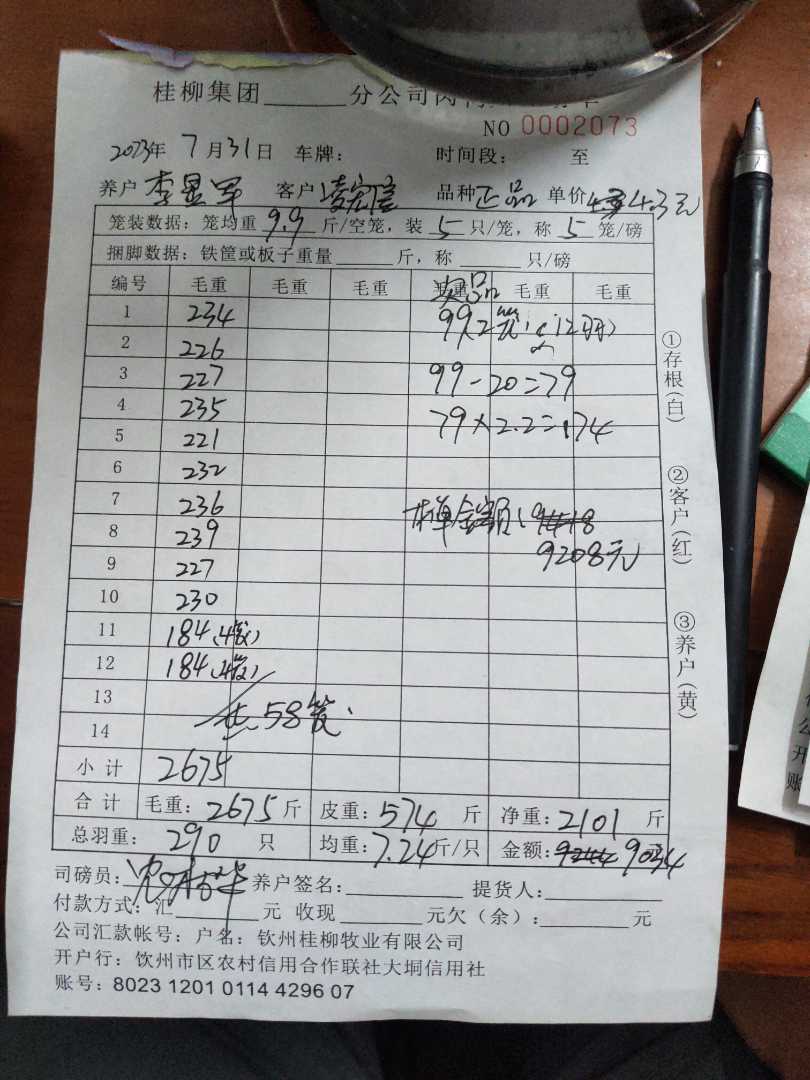 桂柳集团______分公司肉
NO 0002073
2023年 7月31日 车牌: 时间段: 至
养户 李显军 客户 凌宏信 品种 正品 单价 4.3元
笼装数据: 笼均重 9.9 斤/空笼, 装 5 只/笼, 称 5 笼/磅
捆脚数据: 铁筐或板子重量______斤, 称______只/磅
编号 毛重 毛重 毛重 毛重 毛重 毛重
1 234 99 2笼 (12羽)
2 226
3 227 99-20=79
4 235 79×2.2=174
5 221
6 232
7 236 单金额: 9418
8 239 9208元
9 227
10 230
11 184 (4笼)
12 184 (4笼)
13 共58笼
14
小计 2675
合计 毛重: 2675 斤 皮重: 574 斤 净重: 2101 斤
总羽重: 290 只 均重: 7.24 斤/只 金额: 9244 9034
司磅员: 养户签名: 提货人:
付款方式: 汇______元 收现______元欠(余):______元
公司汇款帐号: 户名: 钦州桂柳牧业有限公司
开户行: 钦州市区农村信用合作联社大垌信用社
账号: 8023 1201 0114 4296 07
①存根(白)
②客户(红)
③养户(黄)